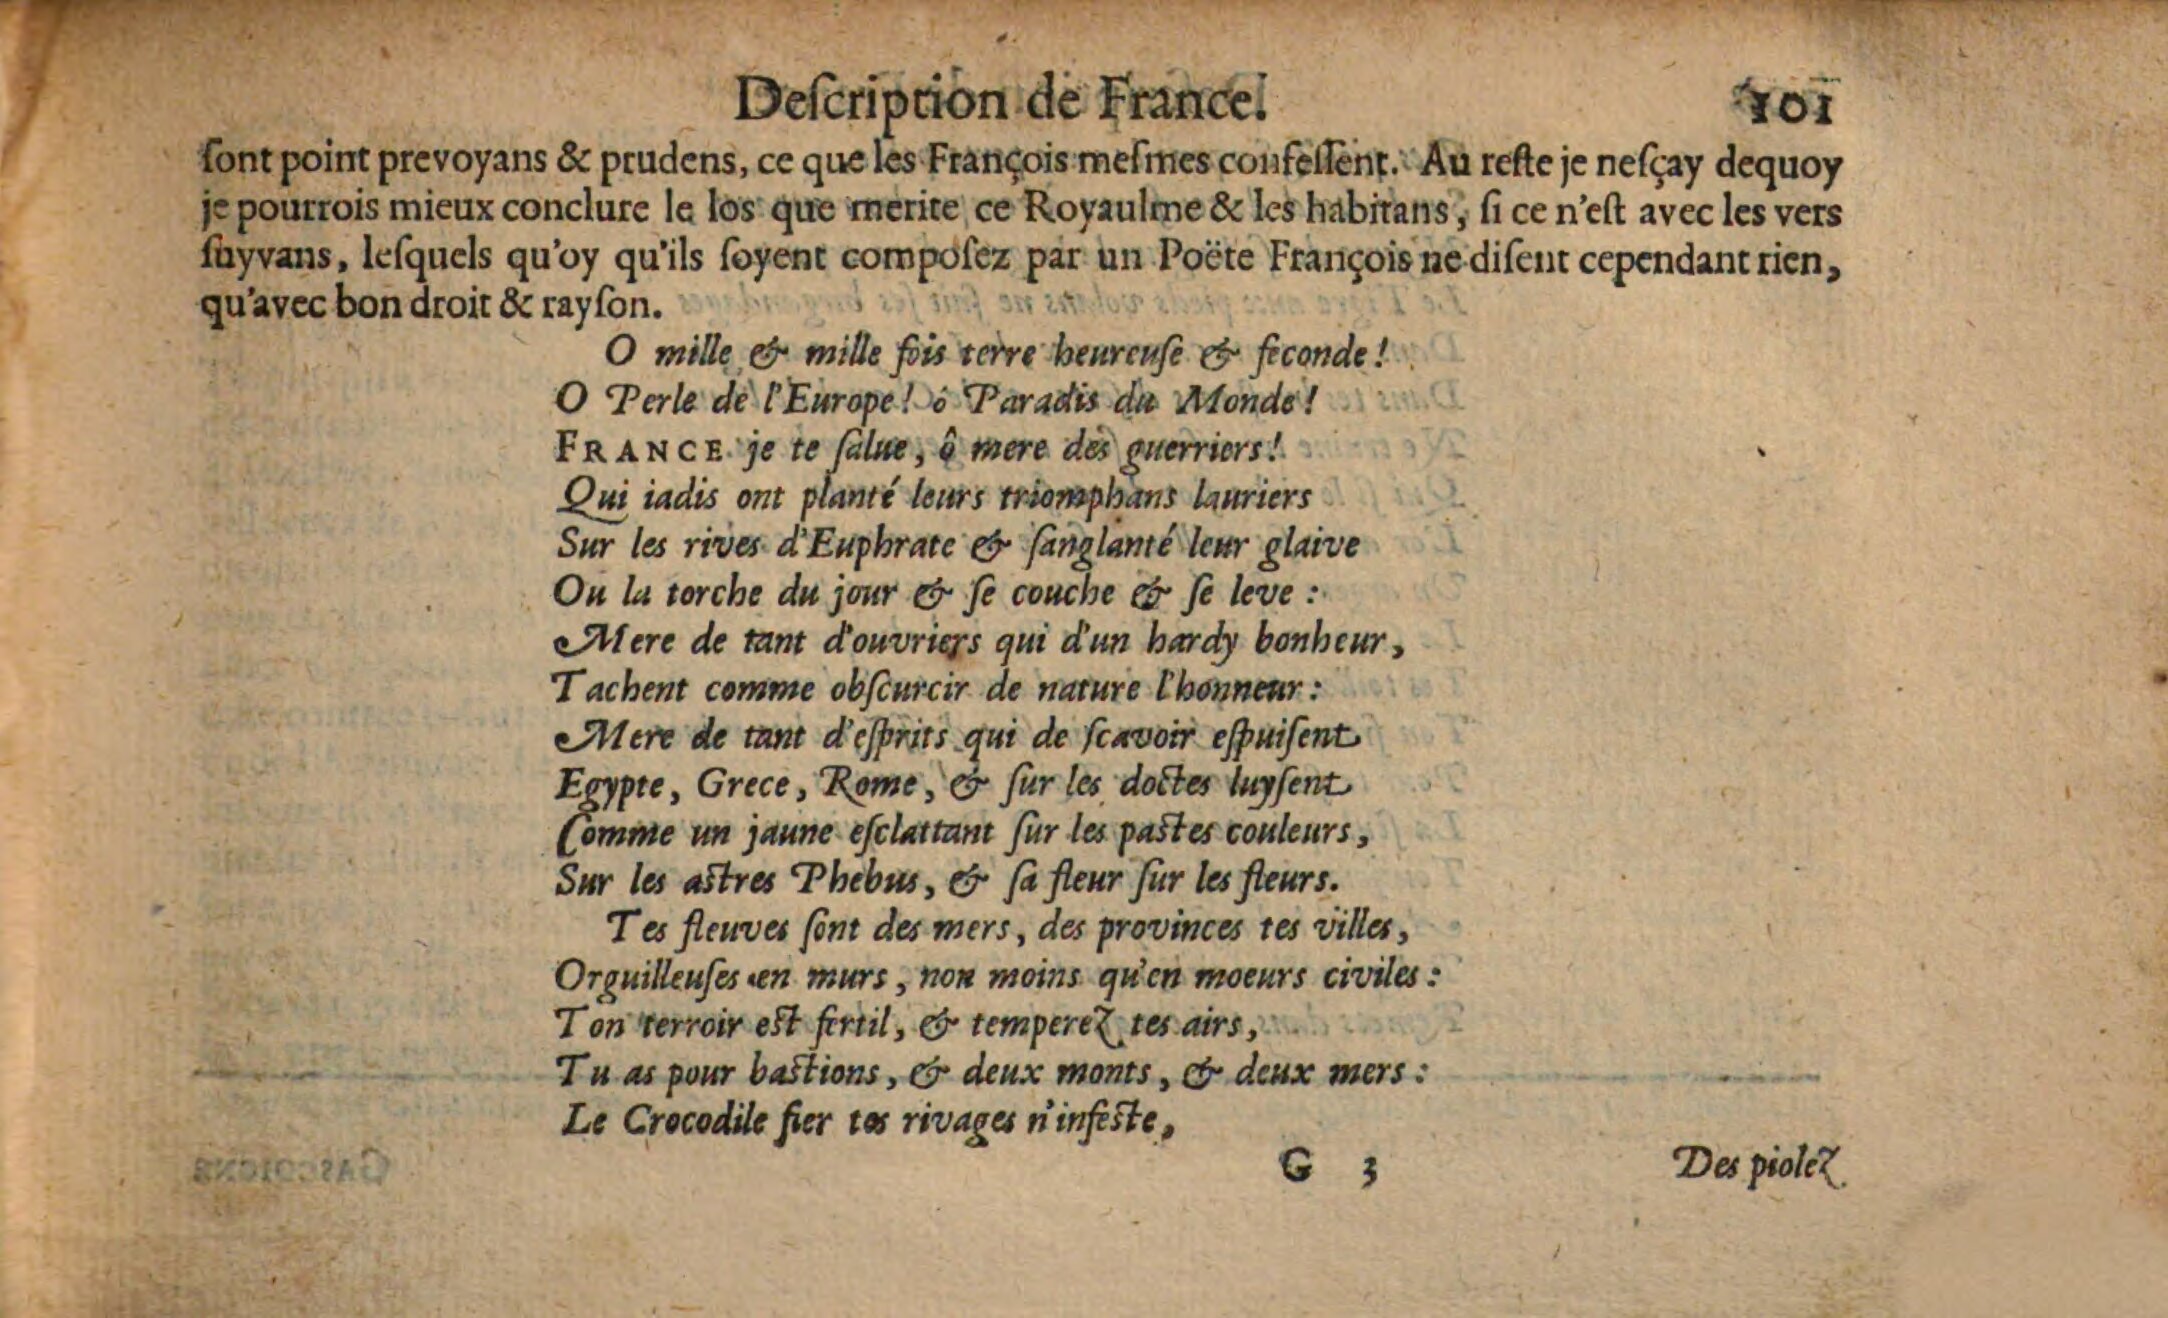 Deſcription de France. 101
ſont point prevoyans & prudens, ce que les François meſmes confeſſent. Au reſte je neſçay dequoy
je pourrois mieux conclure le los que merite ce Royaulme & les habitans, ſi ce n'eſt avec les vers
ſuyvans, leſquels qu'oy qu'ils ſoyent compoſez par un Poëte François ne diſent cependant rien,
qu'avec bon droit & rayſon.
O mille & mille fois terre heureuſe & feconde!
O Perle de l'Europe! ó Paradis du Monde!
FRANCE je te ſalue, ô mere des guerriers!
Qui iadis ont planté leurs triomphans lauriers
Sur les rives d'Euphrate & ſanglanté leur glaive
Ou la torche du jour & ſe couche & ſe leve:
Mere de tant d'ouvriers qui d'un hardy bonheur,
Tachent comme obſcurcir de nature l'honneur:
Mere de tant d'eſprits qui de ſcavoir eſpuiſent
Egypte, Grece, Rome, & ſur les doctes luyſent
Comme un jaune eſclattant ſur les paſtes couleurs,
Sur les aſtres Phebus, & ſa fleur ſur les fleurs.
Tes fleuves ſont des mers, des provinces tes villes,
Orguilleuſes en murs, non moins qu'en moeurs civiles:
Ton terroir eſt fertil, & temperez tes airs,
Tu as pour baſtions, & deux monts, & deux mers:
Le Crocodile fier tes rivages n'infeſte,
G 3 Des piolez